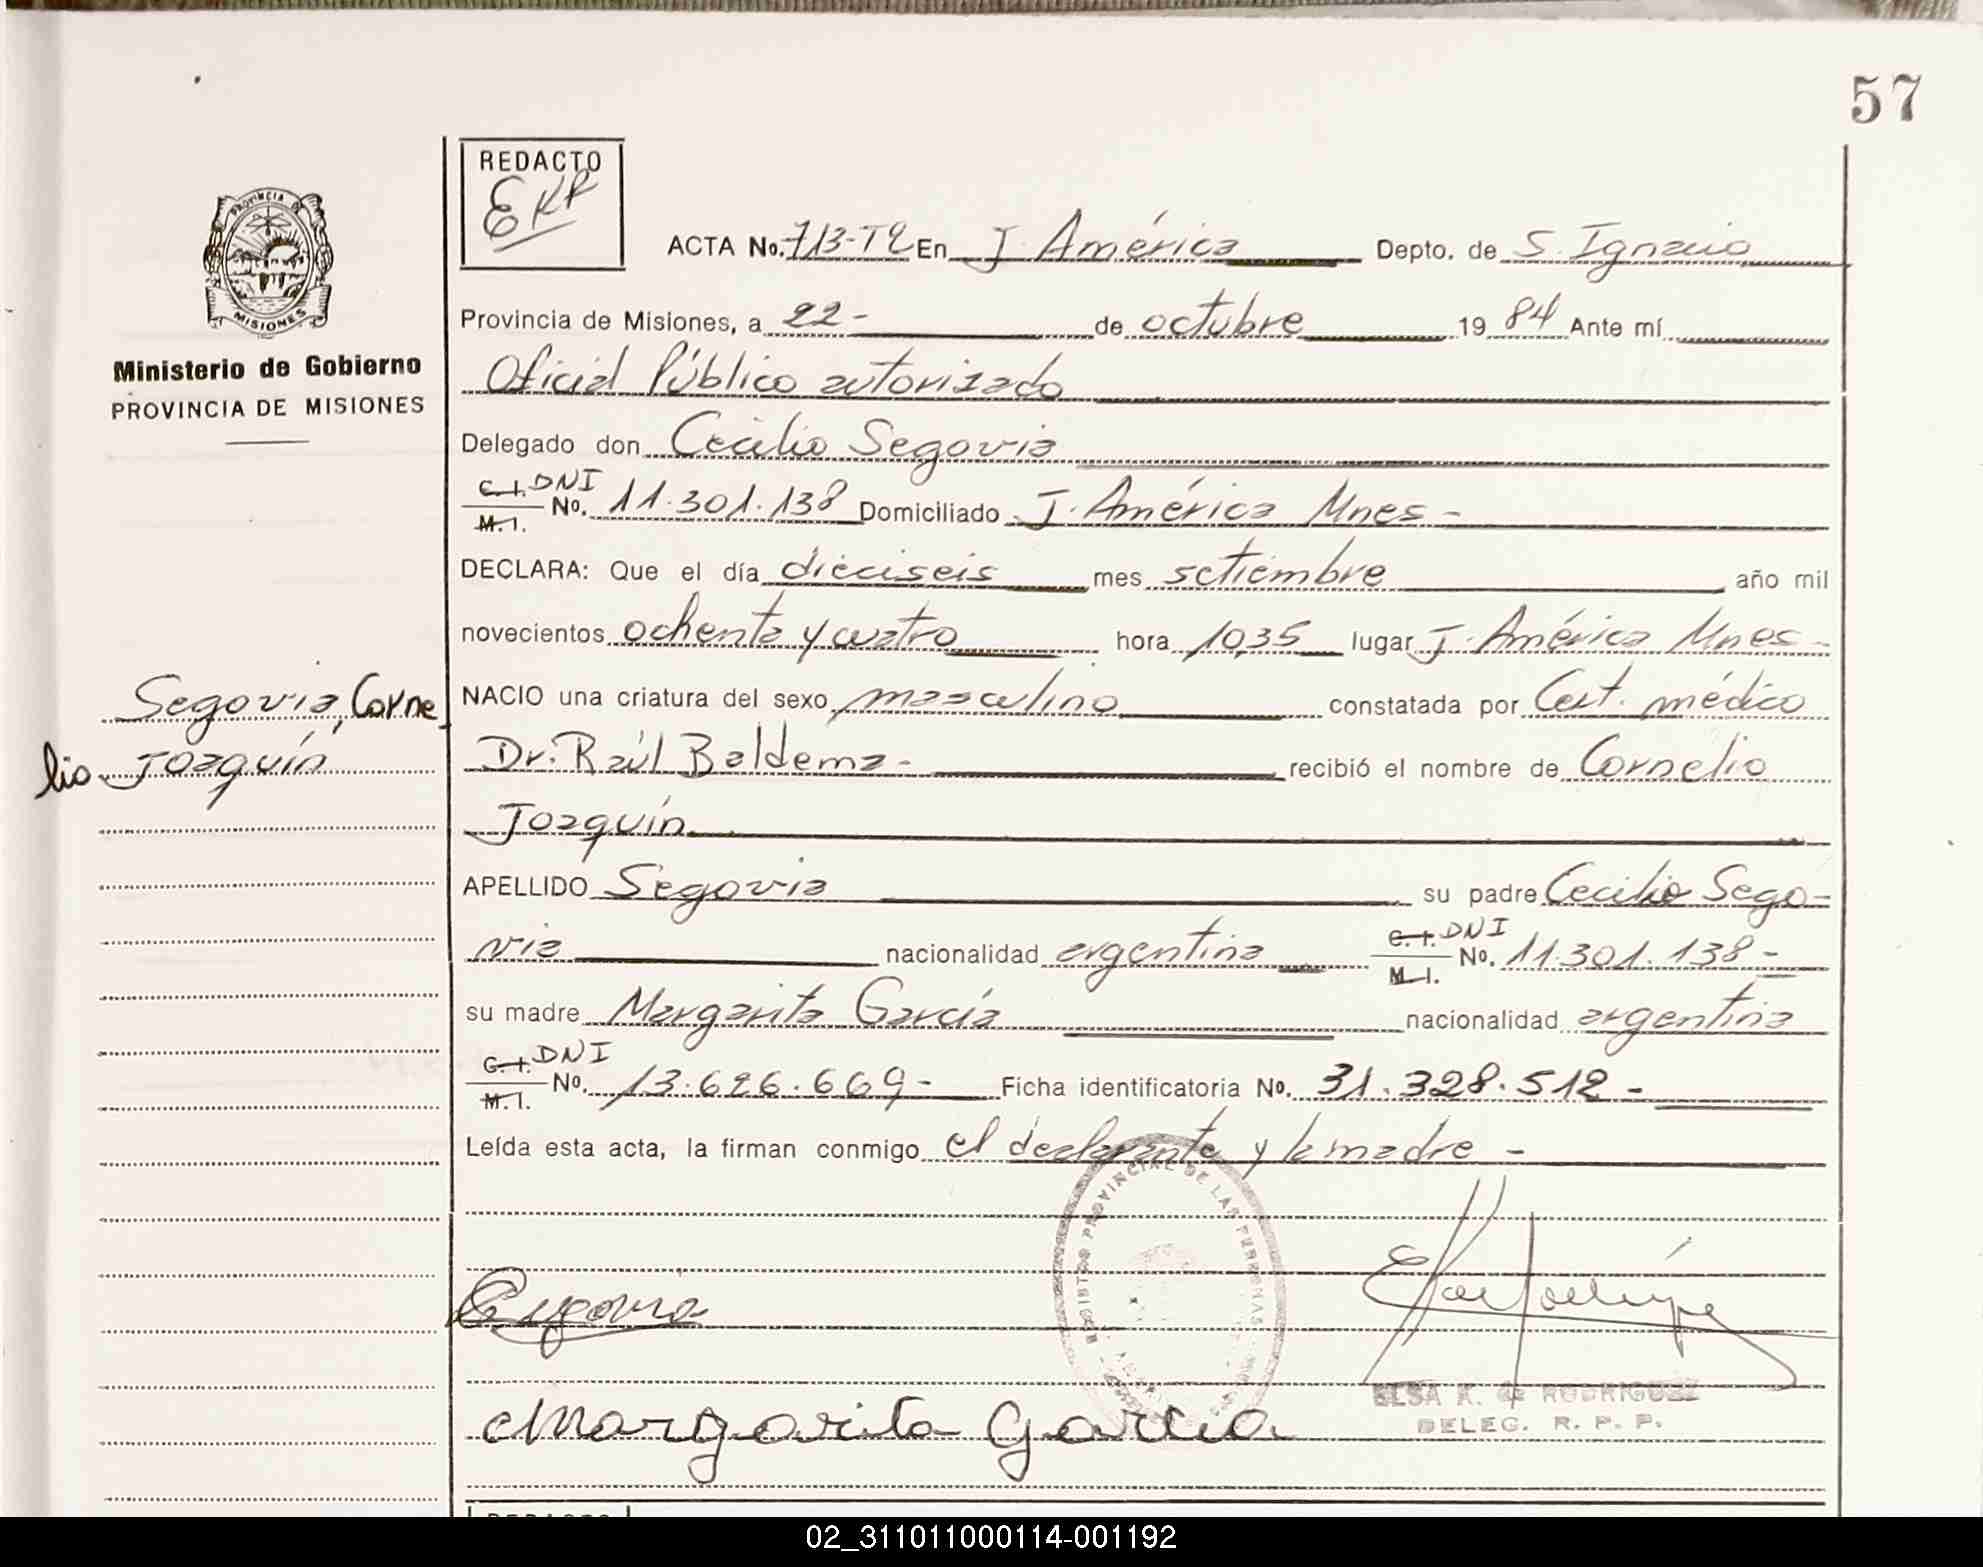 57
REDACTO
EKR
ACTA No. 713-T2 En J. América Depto. de S. Ignacio
PROVINCIA DE
MISIONES
Provincia de Misiones, a 22- de octubre 19 84 Ante mí
Ministerio de Gobierno
PROVINCIA DE MISIONES
Oficial Público autorizado
Delegado don Cecilio Segovia
C.I. DNI
M.I. No. 11.301.138 Domiciliado J. América Mnes -
DECLARA: Que el día dieciseis mes setiembre año mil
novecientos ochenta y cuatro hora 10,35 lugar J. América Mnes -
Segovia, Corne
lio Joaquín
NACIO una criatura del sexo masculino constatada por Cert. médico
Dr. Raúl Baldema - recibió el nombre de Cornelio
Joaquín
APELLIDO Segovia su padre Cecilio Sego-
via nacionalidad argentina C.I. DNI M.I. No. 11.301.138 -
su madre Margarita García nacionalidad argentina
C.I. DNI
M.I. No. 13.626.669 - Ficha identificatoria No. 31.328.512 -
Leída esta acta, la firman conmigo el declarante y la madre -
REGISTRO PROVINCIAL DE LAS PERSONAS
Margarita Garcia
ELSA K. de RODRIGUEZ
DELEG. R. P. P.
02_311011000114-001192